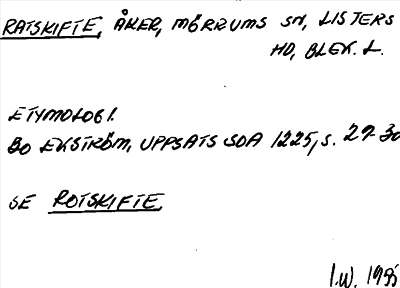 RATSKIFTE, ÅKER, MÖRRUMS SN, LISTERS
HD, BLEK. L.
ETYMOLOGI.
BO EKSTRÖM, UPPSATS SOA 1225, S. 29-30
SE ROTSKIFTE.
I.W. 1995